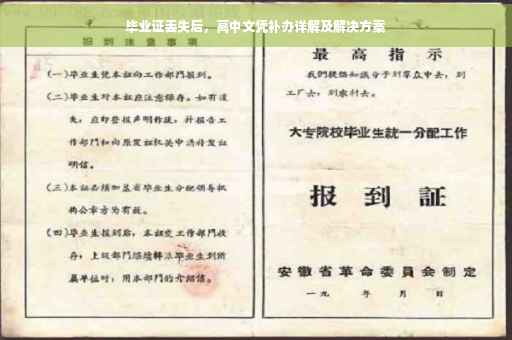 毕业证丢失后，高中文凭补办详解及解决方案
报到注意事项
(一)毕业生凭本证向工作部門报到。
(二)毕业生对本证应注意保存。如有遺
失，应即登报声明作废，并报告工
作部門和向原发证机关申請补发证
明信。
(三)本证必须加盖省毕业生分配领导机
构公章方为有效。
(四)毕业生报到后，本证交工作部門收
存；上级部門介绍信
属单位时，用本部門的介绍信。
最高指示
我們提倡知識分子到羣众中去，到
工厂去，到农村去。
大专院校毕业生統一分配工作
报到証
安徽省革命委員会制定
一九 年 月 日